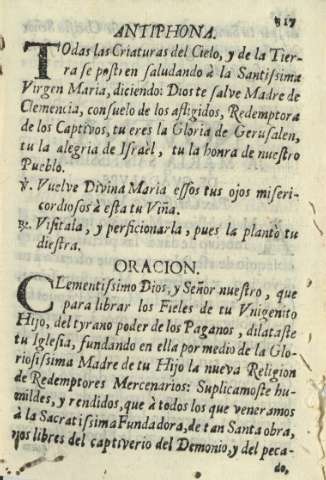 817
ANTIPHONA.
TOdas las Criaturas del Cielo, y de la Tier-
ra se postren saludando à la Santissima
Virgen Maria, diciendo: Dios te salve Madre de
Clemencia, consuelo de los afligidos, Redemptora
de los Captivos, tu eres la Gloria de Gerusalen,
tu la alegria de Israel, tu la honra de nuestro
Pueblo.
℣. Vuelve Divina Maria essos tus ojos miseri-
cordiosos à esta tu Viña.
℟. Visitala, y perficionarla, pues la plantò tu
diestra.
ORACION.
CLementissimo Dios, y Señor nuestro, que
para librar los Fieles de tu Vnigenito
Hijo, del tyrano poder de los Paganos, dilataste
tu Iglesia, fundando en ella por medio de la Glo-
riosissima Madre de tu Hijo la nueva Religion
de Redemptores Mercenarios: Suplicamoste hu-
mildes, y rendidos, que à todos los que veneramos
à la Sacratissima Fundadora, de tan Santa obra,
nos libres del captiverio del Demonio, y del peca-
do,